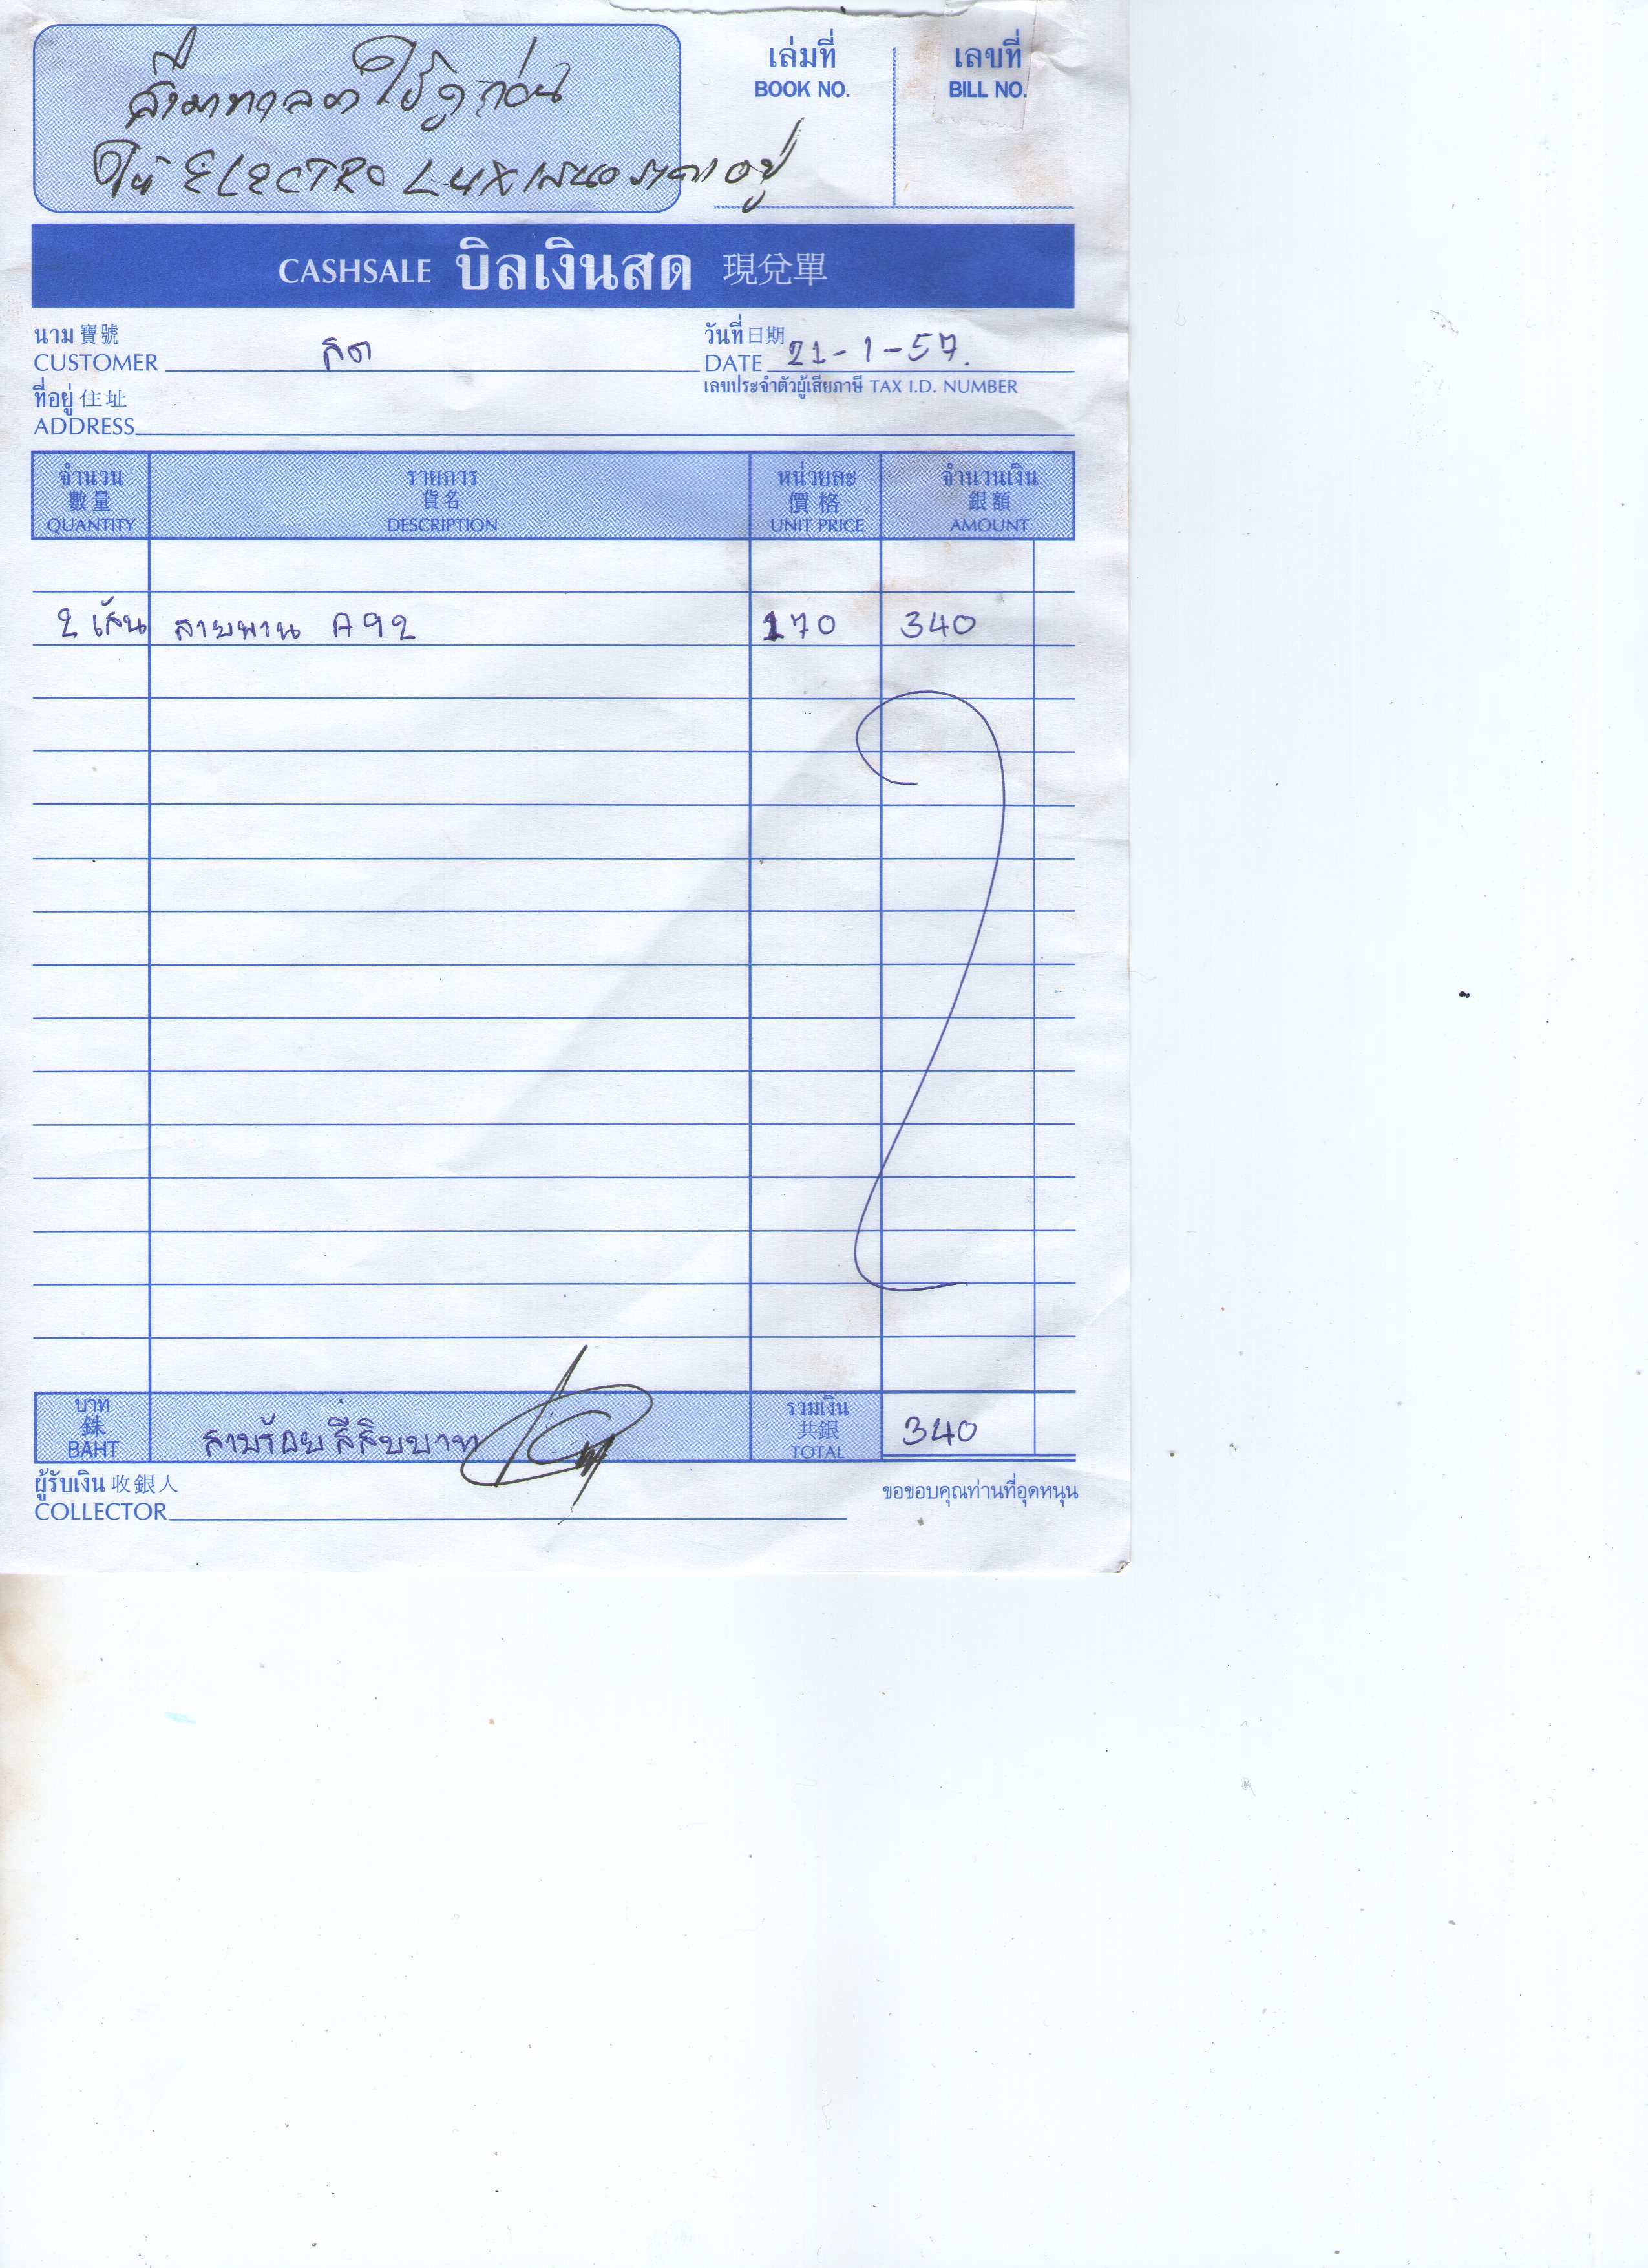 สั่งมาทดลองใช้ดูก่อน
ให้ ELECTROLUX เสนอราคาอยู่
เล่มที่
BOOK NO.
เลขที่
BILL NO.
CASHSALE บิลเงินสด 現兌單
นาม 寶號
CUSTOMER สด
วันที่ 日期
DATE 21-1-57.
เลขประจำตัวผู้เสียภาษี TAX I.D. NUMBER
ที่อยู่ 住址
ADDRESS
จำนวน 數量 QUANTITY
รายการ 貨名 DESCRIPTION
หน่วยละ 價格 UNIT PRICE
จำนวนเงิน 銀額 AMOUNT
2 เส้น สายพาน A92 170 340
บาท 銖 BAHT
สามร้อยสี่สิบบาท
รวมเงิน 共銀 TOTAL
340
ผู้รับเงิน 收銀人
COLLECTOR
ขอขอบคุณท่านที่อุดหนุน